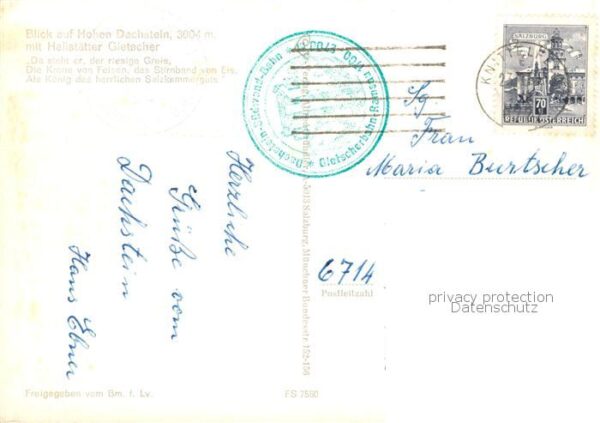 Blick auf Hohen Dachstein, 3004 m,
mit Hallstätter Gletscher
„Da steht er, der riesige Greis,
Die Krone von Felsen, das Stirnband von Eis.
Als König des herrlichen Salzkammerguts
Herzliche
Grüße vom
Dachstein
Hans Ebner
Freigegeben vom Bm. f. Lv.
FS 7560
5013 Salzburg, Münchner Bundesstr. 152-156
Gletscherbahn Ramsau
SALZBURG
70
REPUBLIK ÖSTERREICH
Sg.
Frau
Maria Burtscher
6714
Postleitzahl
privacy protection
Datenschutz